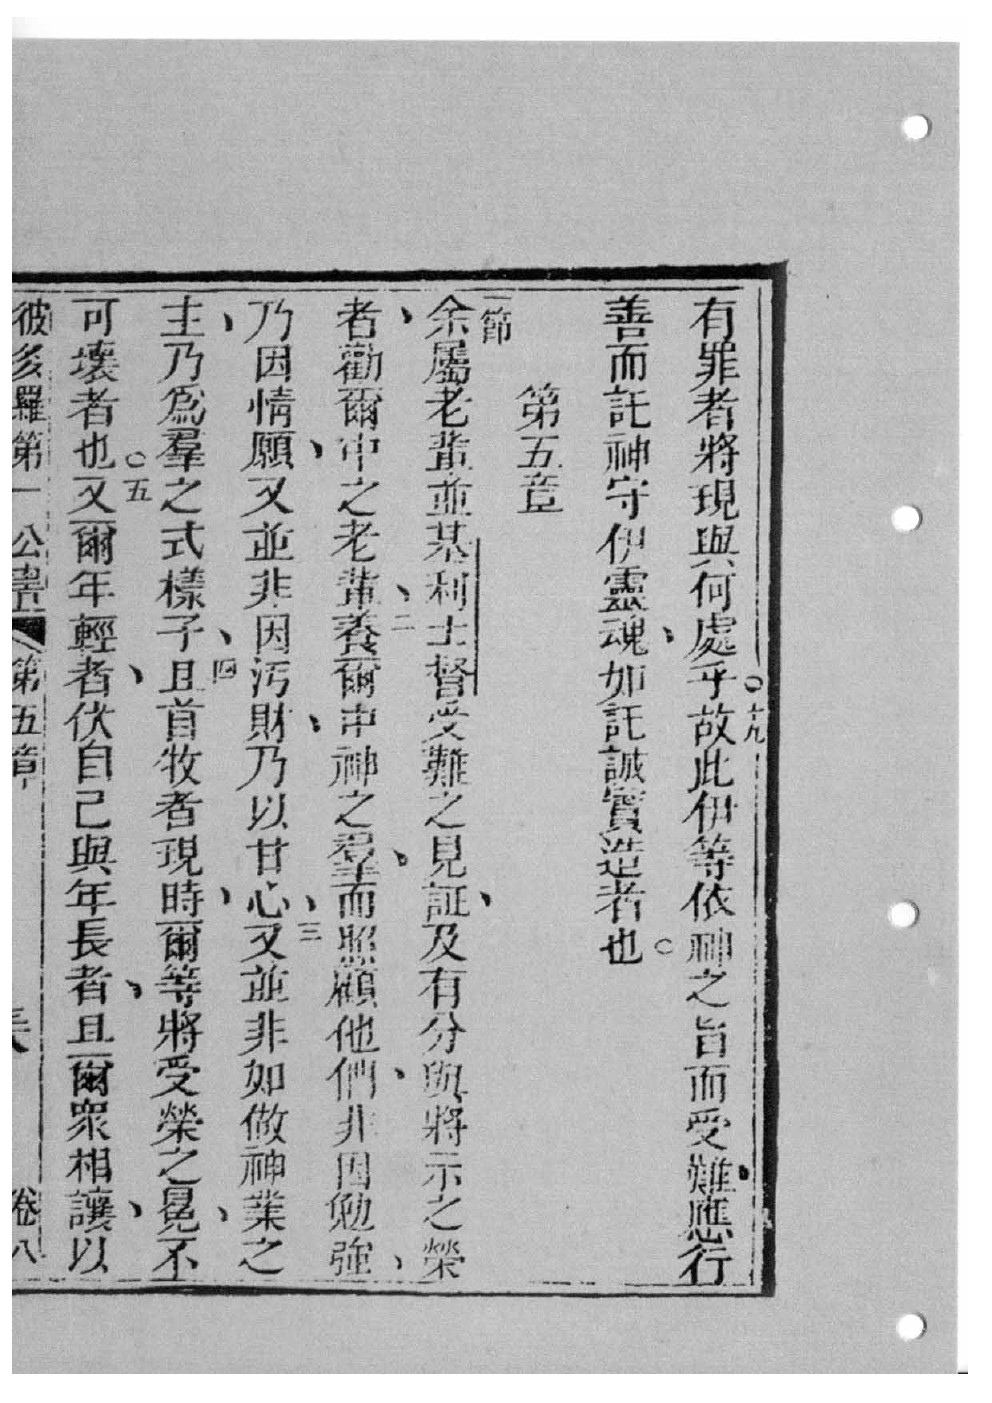 有罪者將現與何處乎○十九故此伊等依神之旨而受難應行
善而託神守伊靈魂、如託誠實造者也○
第五章
一節余屬老輩並基利士督受難之見証、及有分與將示之榮
者、勸爾中之老輩、二養爾中神之羣、而照顧他們、非因勉強、
乃因情願、又並非因污財、乃以甘心、三又並非如做神業之
主、乃為羣之式樣子、四且首牧者現時、爾等將受榮之冕、不
可壞者也○五又爾年輕者、伏自己與年長者、且爾眾相讓、以
彼多羅第一公書 第五章 卷八